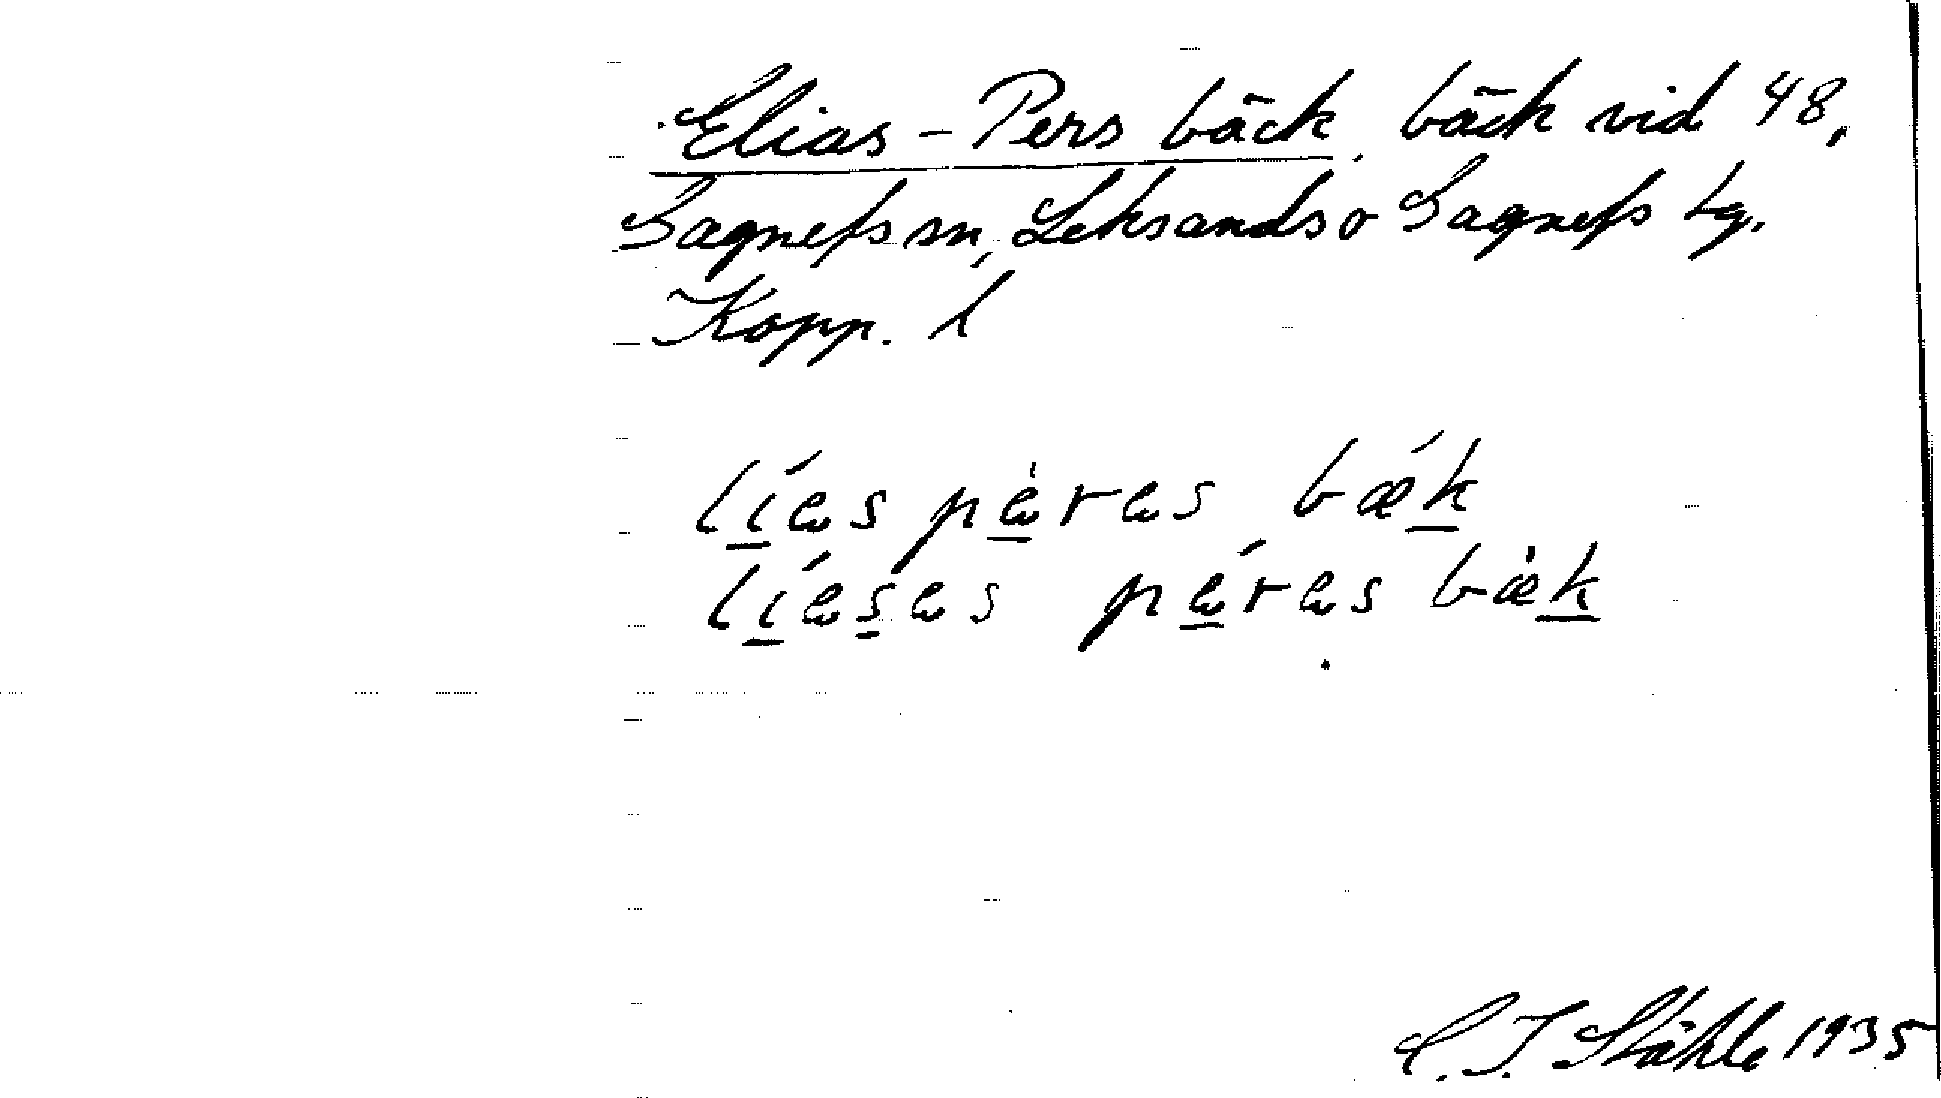 Elias-Pers bäck, bäck vid 48,
Gagnefs sn, Leksands o Gagnefs tg.
Kopp. l
líes pères bǽk
líeses péres bæ̀k
C. I. Ståhle 1935